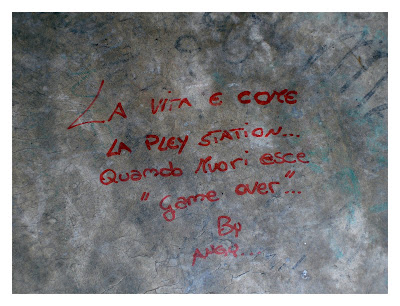 La vita e come
la pley station...
Quamdo muori esce
"game over"...
By